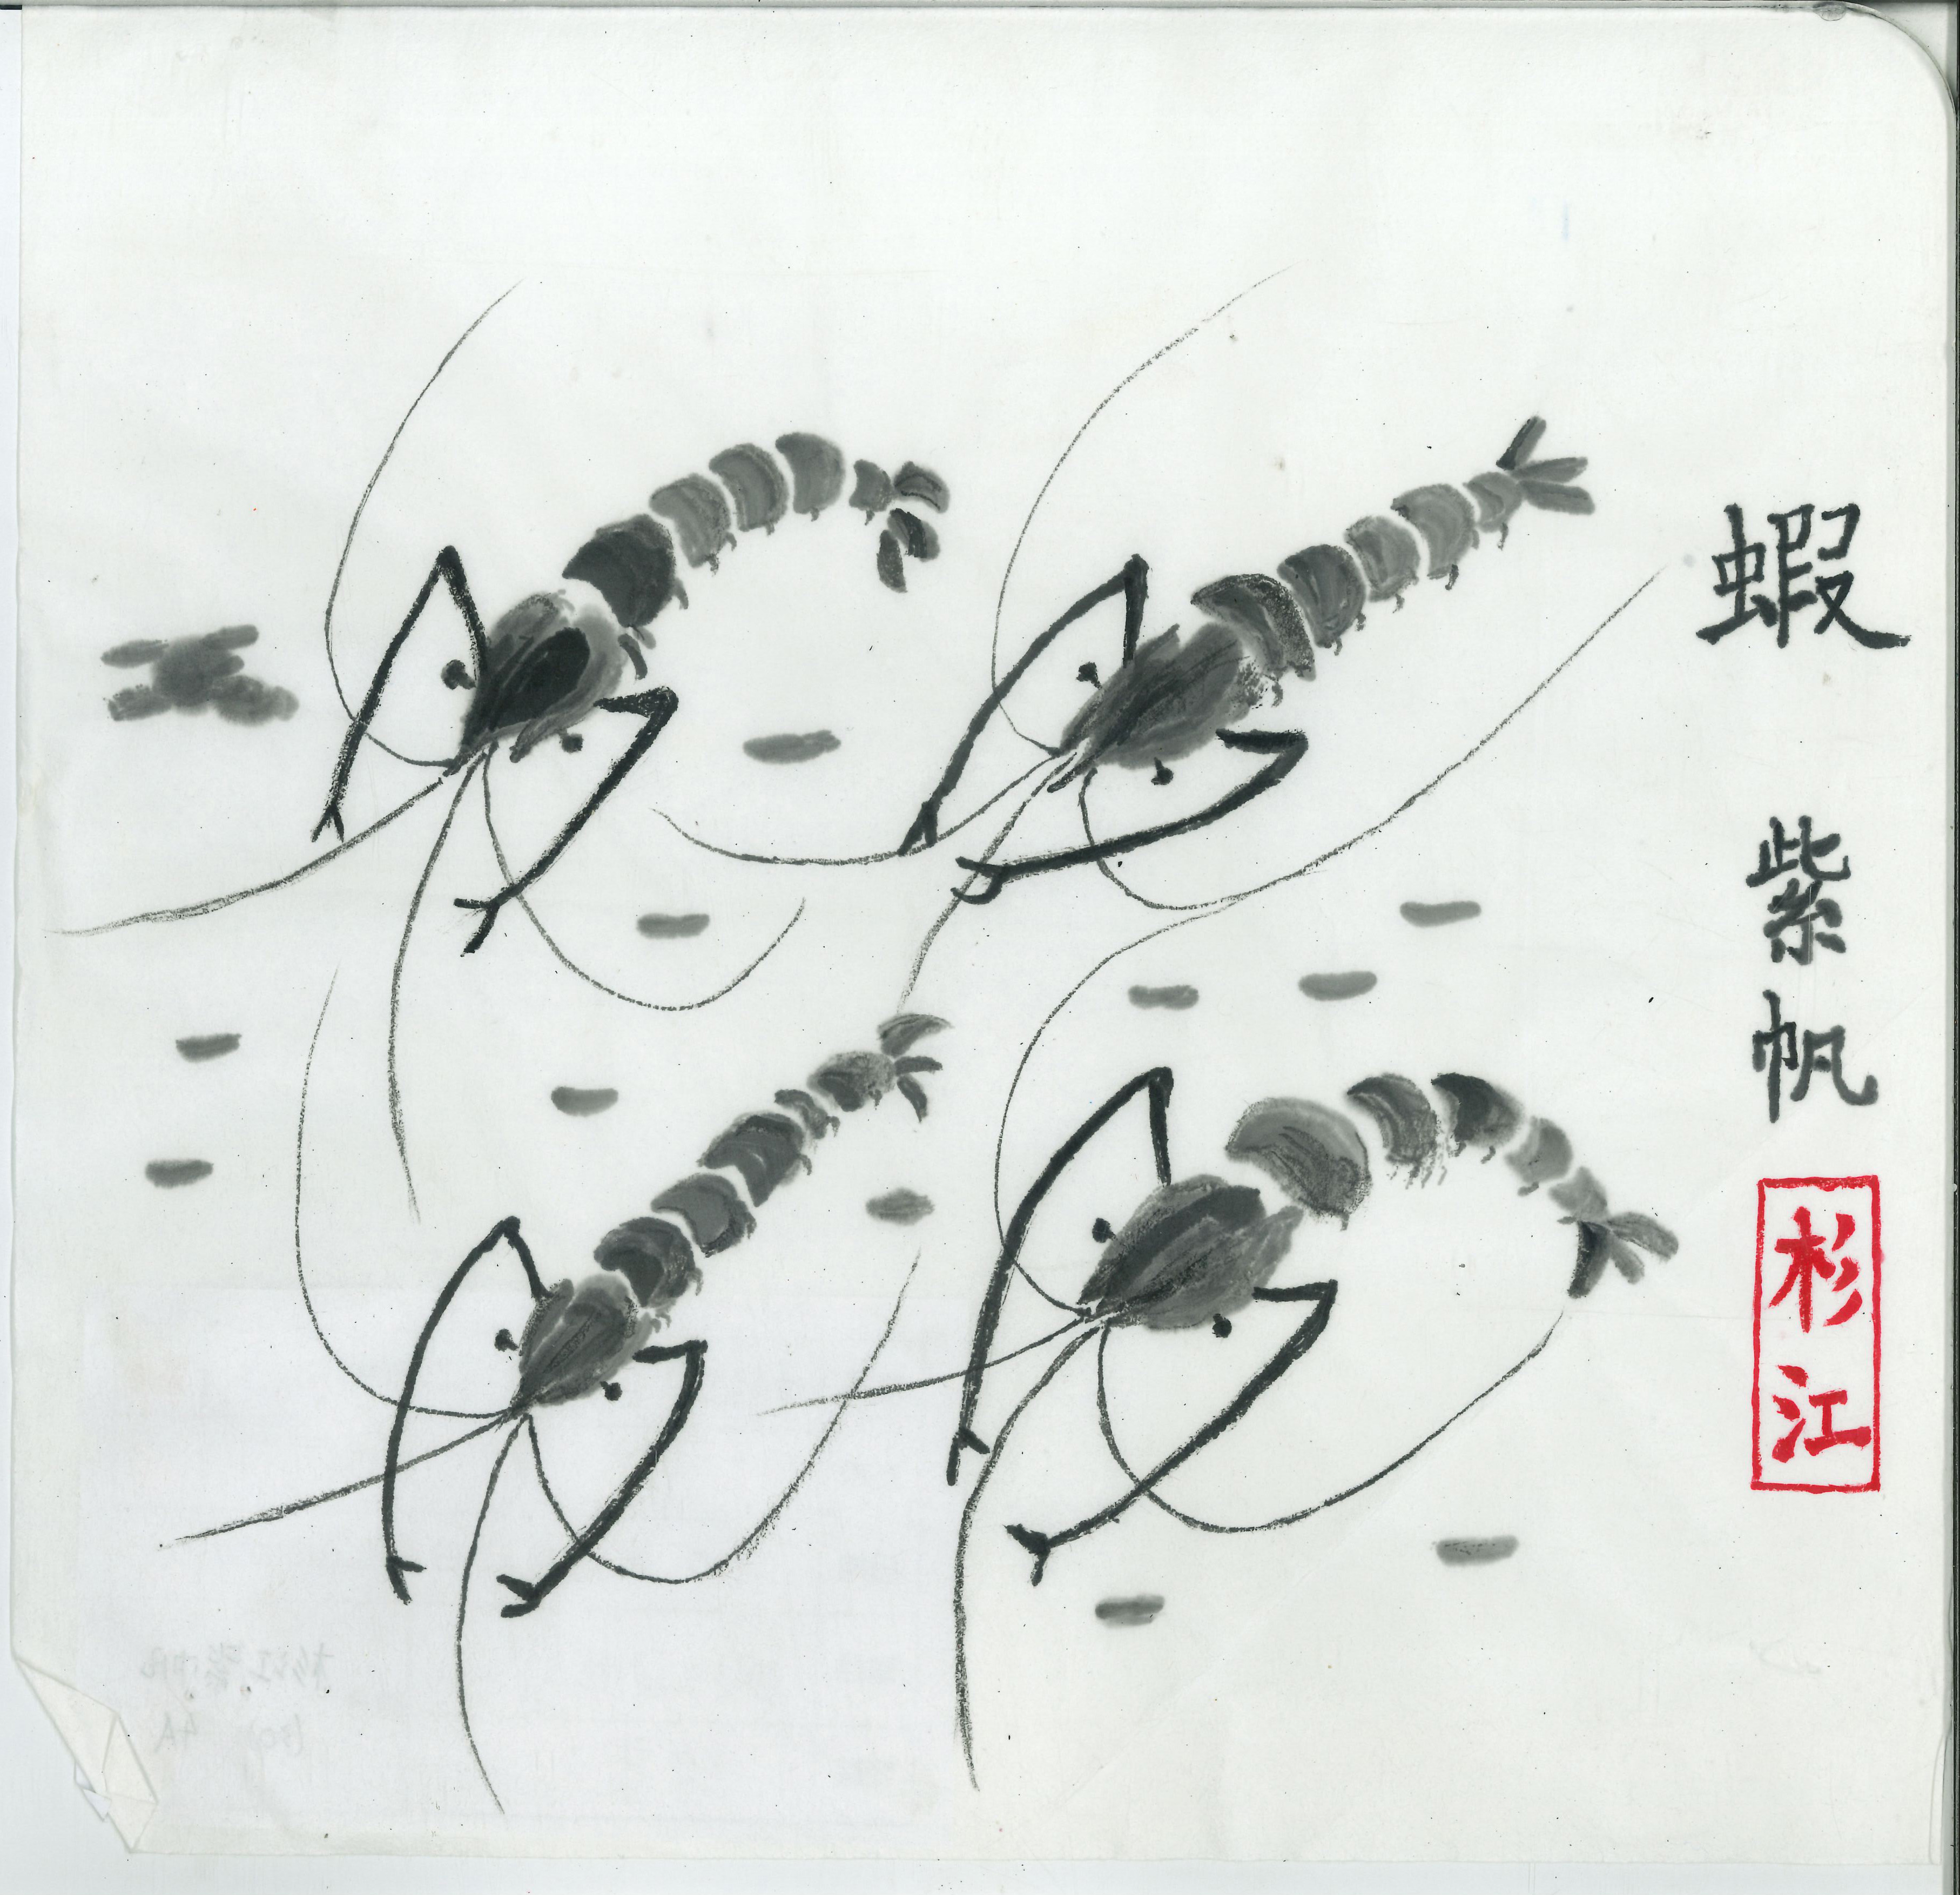 蝦
紫帆
杉江